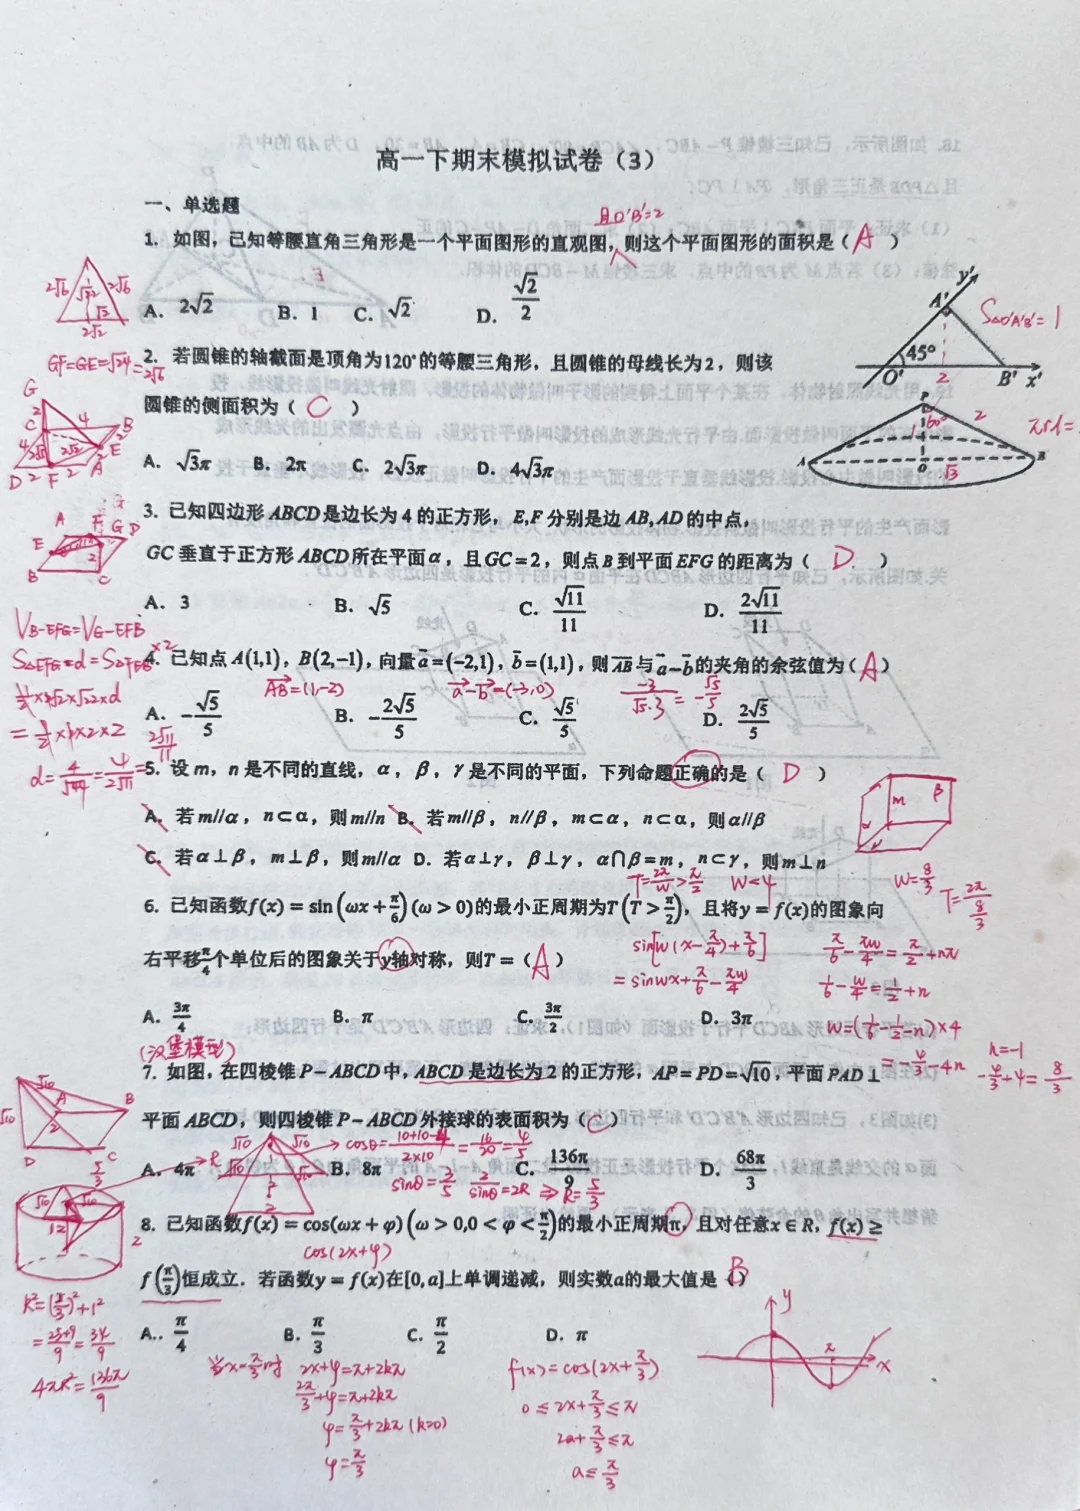 高一下期末模拟试卷（3）
一、单选题
且O'B'=2
1. 如图，已知等腰直角三角形是一个平面图形的直观图，则这个平面图形的面积是（ A ）
A. 2√2 B. 1 C. √2 D. √2/2
A' y' S△O'A'B'=1
45°
O' 2 B' x'
2√6 2√6
√22
√2
2√2
GF=GE=√24=2√6
2. 若圆锥的轴截面是顶角为120°的等腰三角形，且圆锥的母线长为2，则该
圆锥的侧面积为（ C ）
A. √3π B. 2π C. 2√3π D. 4√3π
P 2
60°
1
A O √3 B
πrl=
3. 已知四边形ABCD是边长为4的正方形，E,F分别是边AB,AD的中点，
GC垂直于正方形ABCD所在平面α，且GC=2，则点B到平面EFG的距离为（ D ）
A. 3 B. √5 C. √11/11 D. 2√11/11
V B-EFG=V G-EFB
½×2√2×√22×d
=½×2×2×2
d=4/√44=4/2√11=2√11/11
4. 已知点A(1,1)，B(2,-1)，向量a=(-2,1)，b=(1,1)，则AB与a-b的夹角的余弦值为（ A ）
AB=(1,-2) a-b=(-3,0) -3/√5·3=-√5/5
A. -√5/5 B. -2√5/5 C. √5/5 D. 2√5/5
5. 设m，n是不同的直线，α，β，γ是不同的平面，下列命题正确的是（ D ）
A. 若m//α，n⊂α，则m//n B. 若m//β，n//β，m⊂α，n⊂α，则α//β
C. 若α⊥β，m⊥β，则m//α D. 若α⊥γ，β⊥γ，α∩β=m，n⊂γ，则m⊥n
m β
α n
T=2π/w>π/2 w<4 w=8/3 T=2π/(8/3)
6. 已知函数f(x)=sin(ωx+π/6)(ω>0)的最小正周期为T(T>π/2)，且将y=f(x)的图象向
右平移π/4个单位后的图象关于y轴对称，则T=（ A ）
sin[w(x-π/4)+π/6]
=sinwx+π/6-πw/4
π/6-πw/4=π/2+nπ
1/6-w/4=1/2+n
w=(1/6-1/2-n)×4
=-4/3-4n
n=-1
-4/3+4=8/3
A. 3π/4 B. π C. 3π/2 D. 3π
（汉堡模型）
7. 如图，在四棱锥P-ABCD中，ABCD是边长为2的正方形，AP=PD=√10，平面PAD⊥
平面ABCD，则四棱锥P-ABCD外接球的表面积为（ C ）
A. 4π B. 8π C. 136π/9 D. 68π/3
cosθ=(10+10-4)/(2×10)=16/20=4/5
sinθ=3/5 2/sinθ=2R ⇒R=5/3
R²=(5/3)²+1²
=(25+9)/9=34/9
4πR²=136π/9
8. 已知函数f(x)=cos(ωx+φ)(ω>0,0<φ<π/2)的最小正周期π，且对任意x∈R，f(x)≥
cos(2x+φ)
f(π/3)恒成立．若函数y=f(x)在[0,a]上单调递减，则实数a的最大值是（ B ）
A.. π/4 B. π/3 C. π/2 D. π
当x=π/3时 2x+φ=π+2kπ
2π/3+φ=π+2kπ
φ=π/3+2kπ (k=0)
φ=π/3
f(x)=cos(2x+π/3)
0≤2x+π/3≤π
2a+π/3≤π
a≤π/3
y
π
x